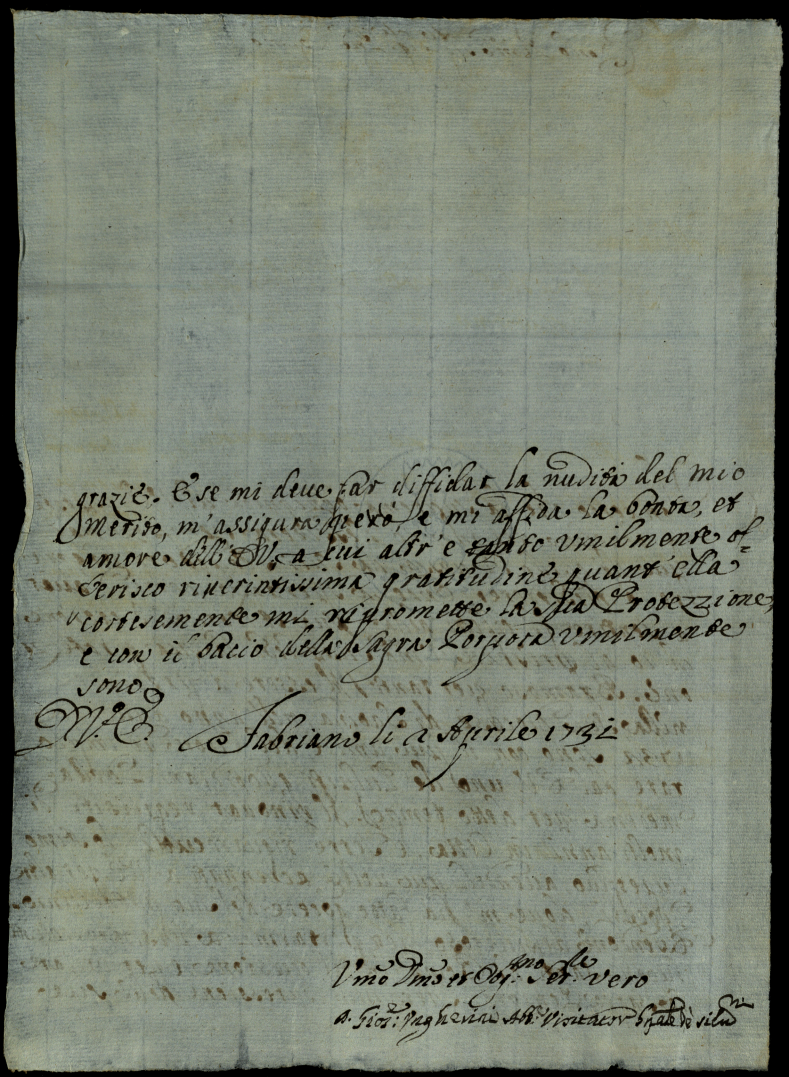 grazie. E se mi deve far diffidar la nudità del mio
merito, m'assigura però, e mi affida la bontà, et
amore dell' E V. a cui altr' e tanto vmilmente of=
ferisco riverintissima gratitudine quant' ella
cortesemente mi ripromette la Sua Protezzione,
e con il bacio della Sagra Porpora vmilmente
sono
D. V. E.
Fabriano li 2 Aprile 1731
Vmo Dmo et Obj.mo Ser.le vero
D. Gio: Abb. Visitator Gnale de Silu.ni